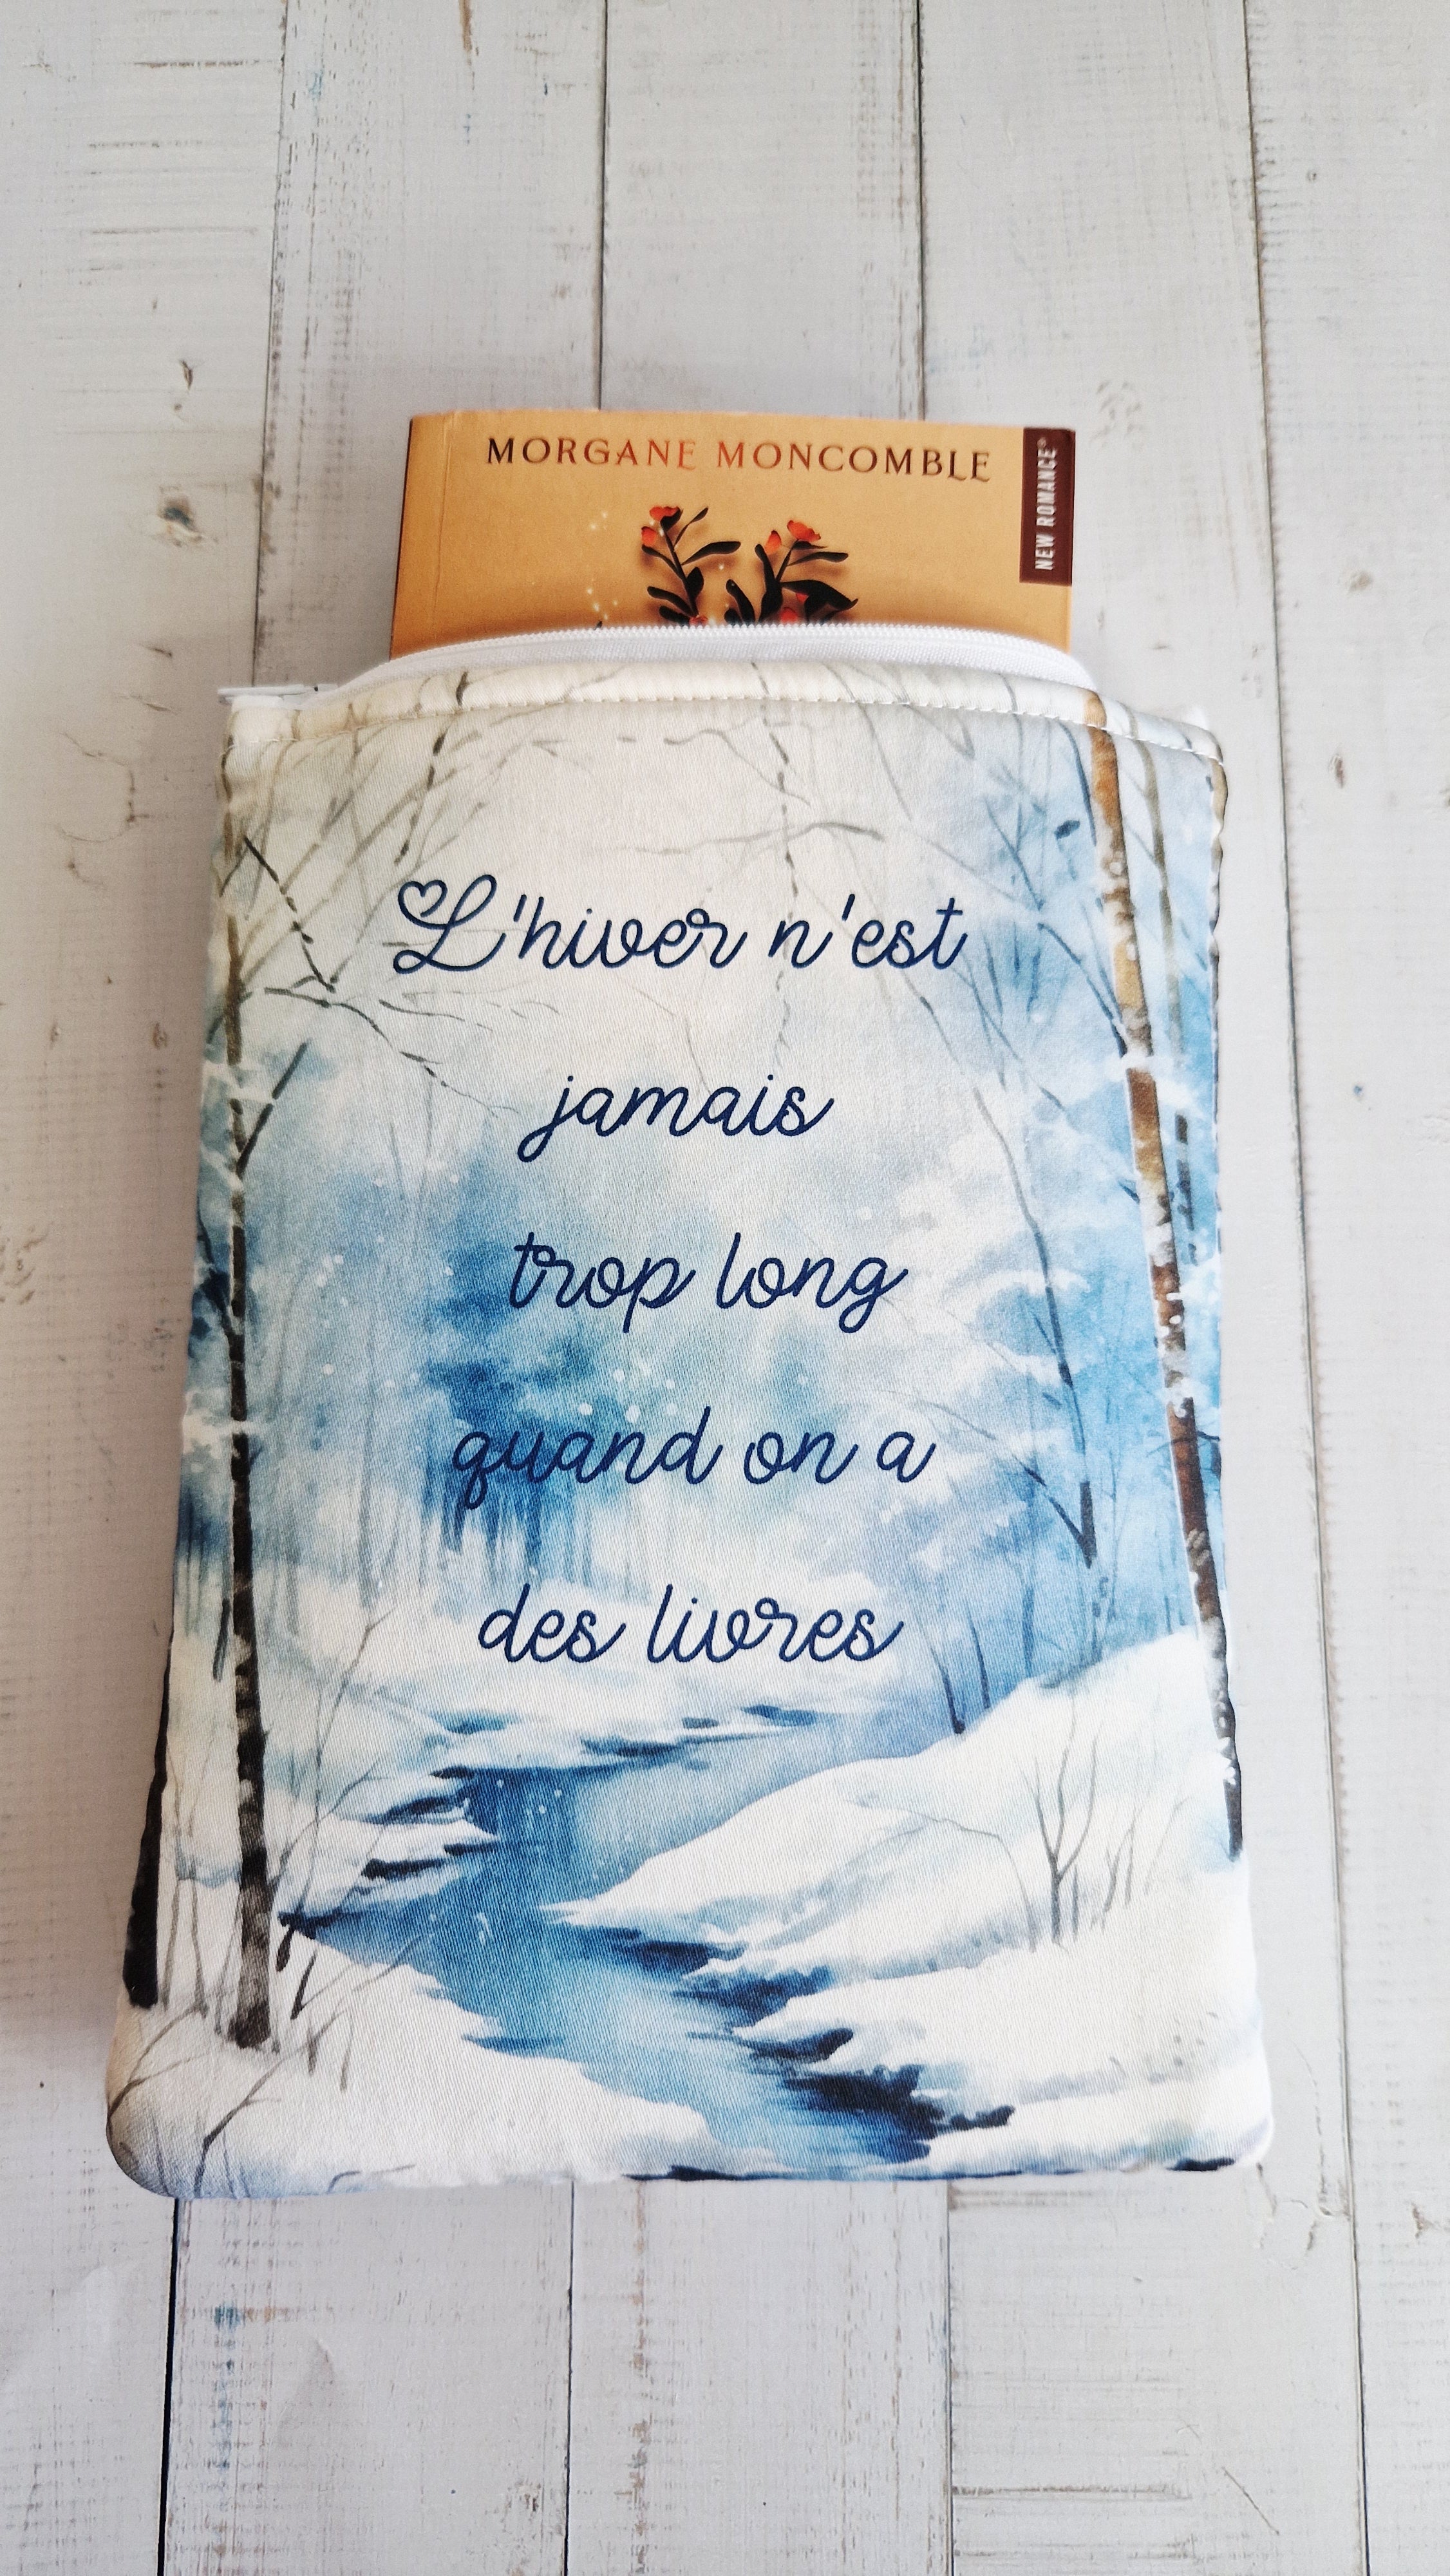 MORGANE MONCOMBLE
NEW ROMANCE®
L'hiver n'est
jamais
trop long
quand on a
des livres